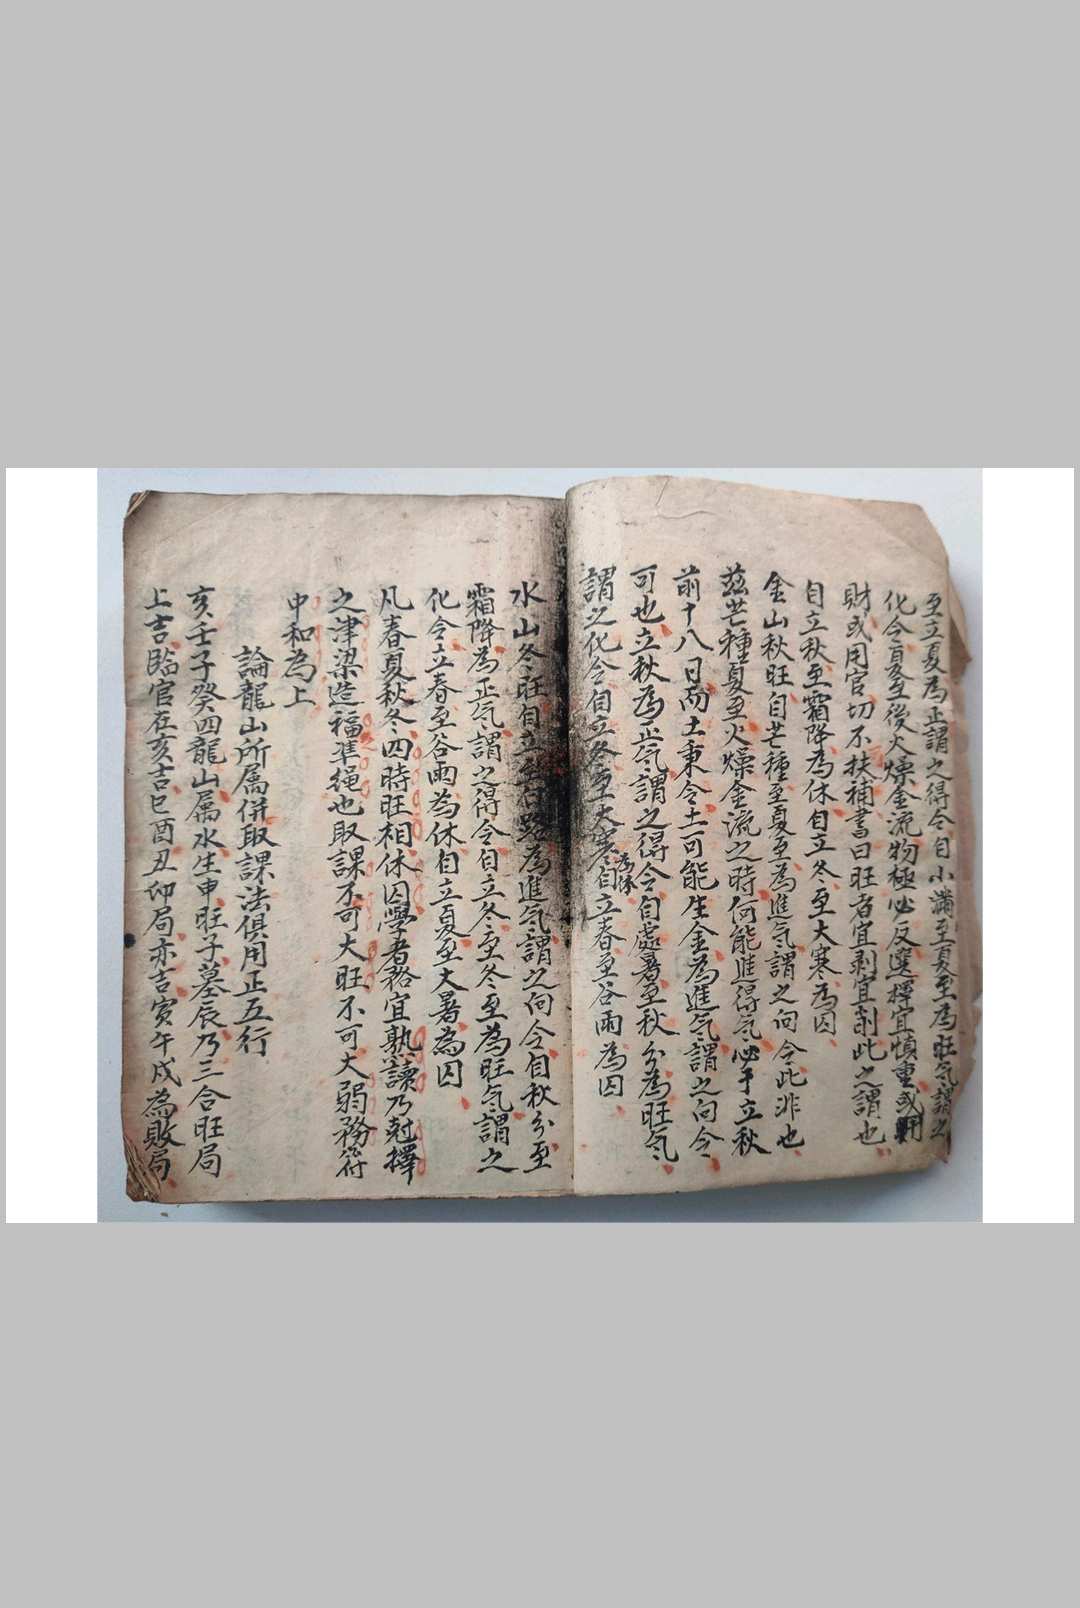 至立夏為正謂之得令自小滿至夏至為旺气謂之
化令夏至後火燥金流物極必反選擇宜慎重或用
財或用官切不扶補書曰旺者宜剥宜削此之謂也
自立秋至霜降為休自立冬至大寒為囚
金山秋旺自芒種至夏至為進气謂之向令此非也
茲芒種夏至火燥金流之時何能進得气必于立秋
前十八日而土秉令土可能生金為進气謂之向令
可也立秋為正气謂之得令自處暑至秋分為旺气
謂之化令自立冬至大寒為休自立春至谷雨為囚
水山冬旺自立秋白露為進气謂之向令自秋分至
霜降為正气謂之得令自立冬至冬至為旺气謂之
化令立春至谷雨為休自立夏至大暑為囚
凡春夏秋冬四時旺相休囚學者務宜熟讀乃尅擇
之津梁造福準绳也取課不可大旺不可大弱務
中和為上
論龍山所属併取課法俱用正五行
亥壬子癸四龍山属水生申旺子墓辰乃三合旺局
上吉臨官在亥吉巳酉丑印局亦吉寅午戌為敗局